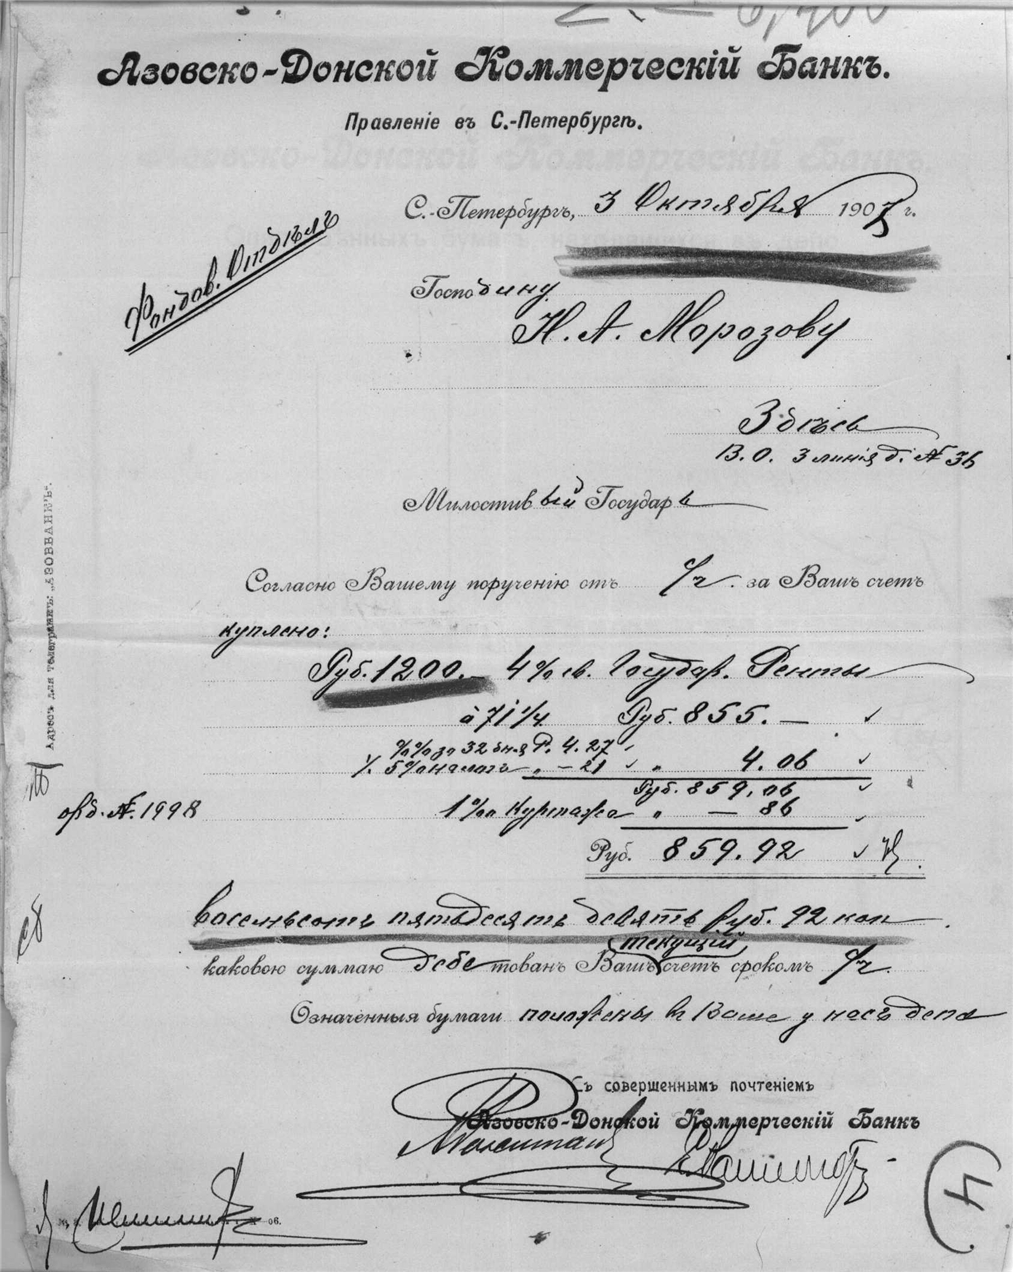 Азовско-Донской Коммерческій Банкъ.
Правленіе въ С.-Петербургѣ.
С.-Петербургъ, 3 Октября 1907 г.
Фондов. Отдѣлъ
Господину
Н. А. Морозову
Здѣсь
В. О. 3 линія д. №
Милостивый Государь
Адресъ для телеграммъ: „АЗОВБАНКЪ“.
Согласно Вашему порученію отъ с/ч. за Вашъ счетъ
куплено:
Руб. 1200.— 4% св. Государ. Ренты
à 71 1/4 Руб. 855.—
%% за 32 дня Р. 4.27
% 5% налога „ —21 „ 4.06
Руб. 859,06
орд. №. 1998
1‰ куртажа „ — 86
Руб. 859.92
восемьсотъ пятьдесятъ девять руб. 92 коп
текущій
каковою суммаю дебетован Вашъ счетъ срокомъ с/ч.
Означенныя бумаги положены въ Ваше у насъ депо
Съ совершеннымъ почтеніемъ
Азовско-Донской Коммерческій Банкъ
4
06.